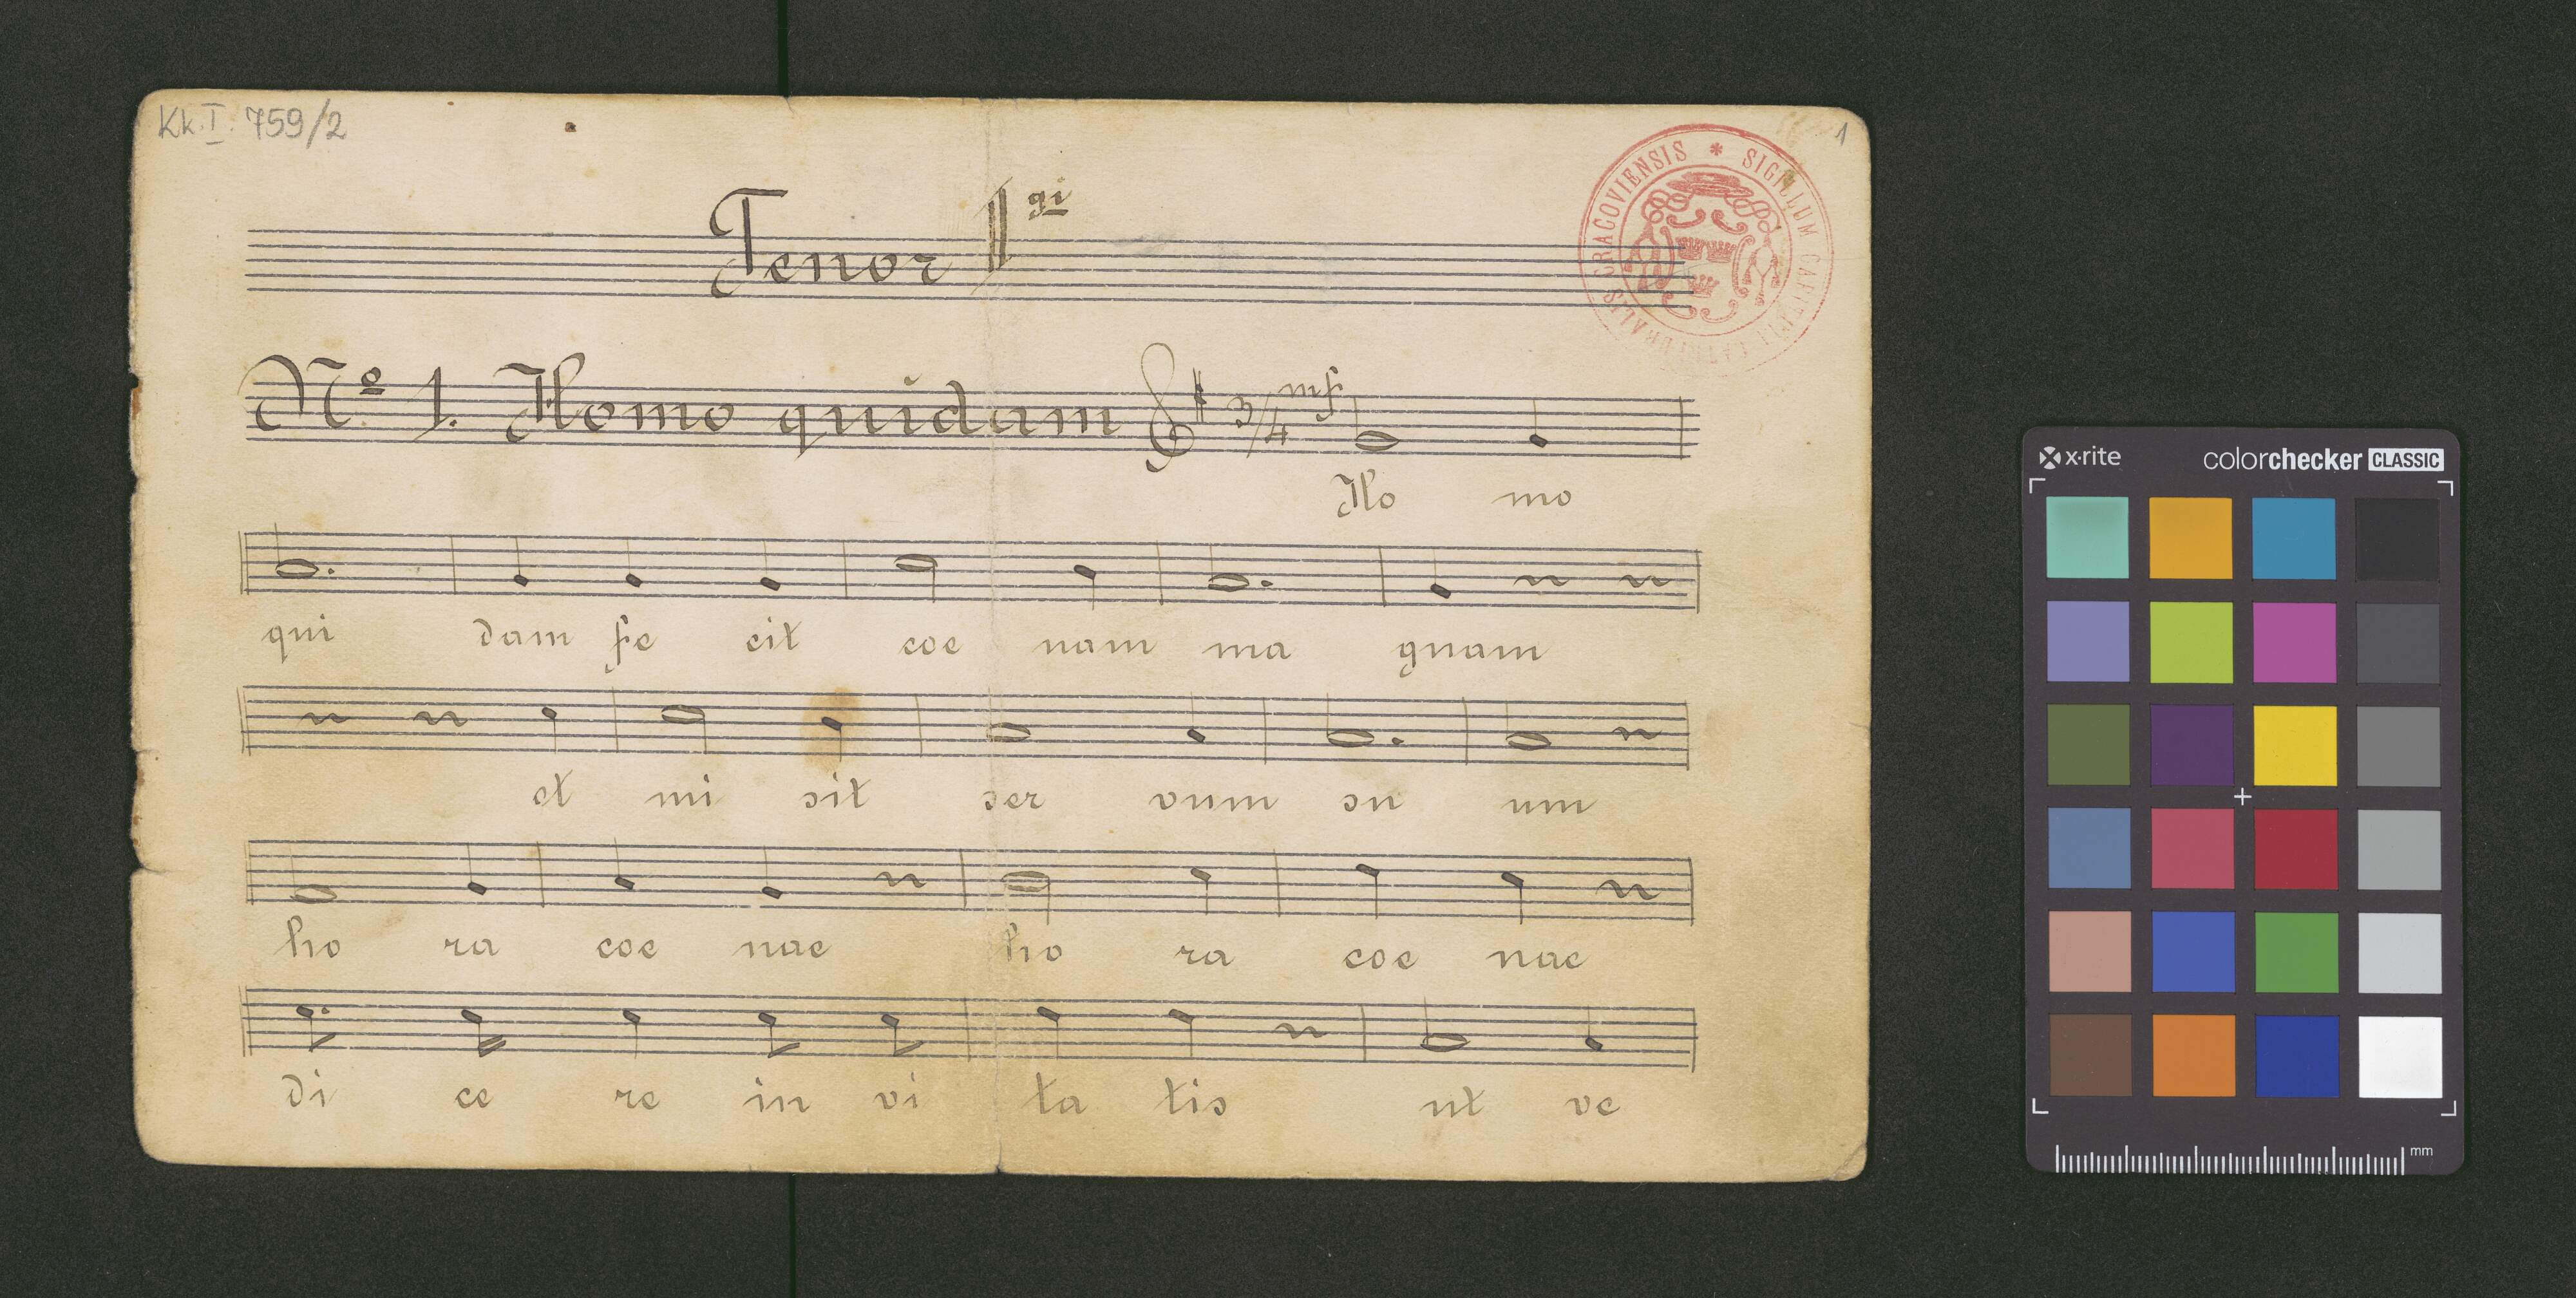 Kk.I. 759/2
1
SIGILLUM CAPITULI CATHEDRALIS CRACOVIENSIS *
Tenor II gi
No 1. Homo quidam 3/4 mf
Ho mo
qui dam fe cit coe nam ma gnam
et mi sit ser vum su um
ho ra coe nae ho ra coe nae
di ce re in vi ta tis ut ve
x-rite colorchecker CLASSIC
mm